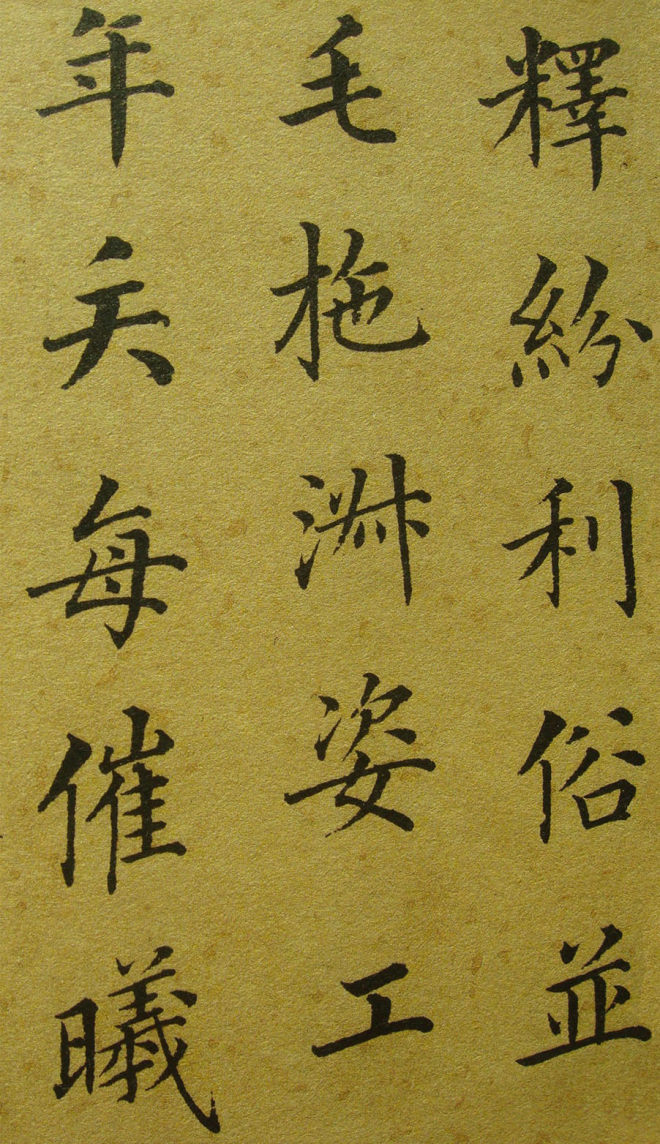 釋紛利俗並
毛施淑姿工
年矢每催曦